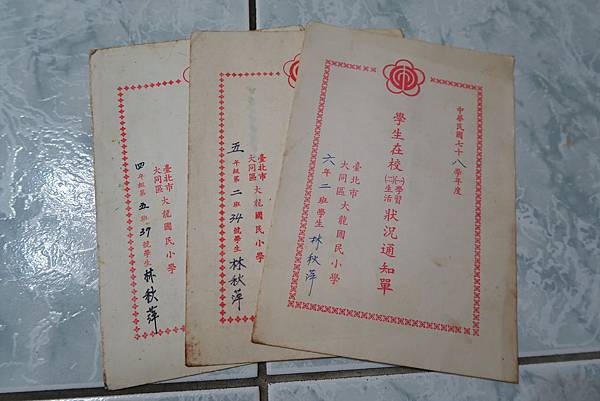 中華民國七十八學年度
學生在校㈠學習㈡生活狀況通知單
臺北市大同區大龍國民小學
六年二班學生林秋萍
臺北市大同區大龍國民小學
五年級第二班34號學生林秋萍
臺北市大同區大龍國民小學
四年級第五班37號學生林秋萍